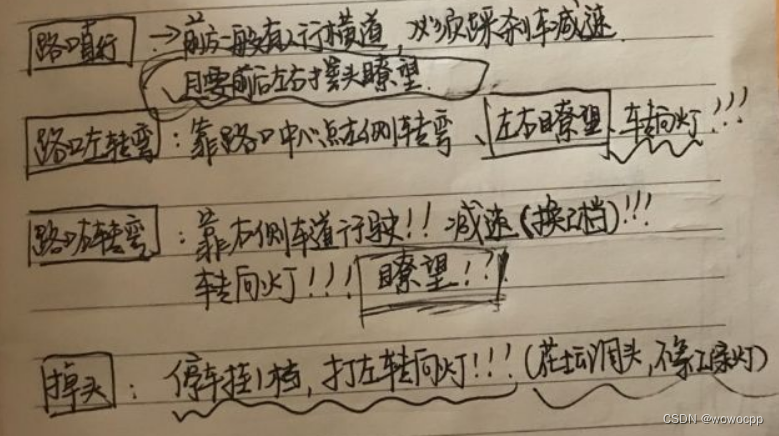 路口直行 → 前方一般有人行横道，必须踩刹车减速
且要前后左右扭头瞭望.
路口左转弯：靠路口中心点左侧转弯、左右瞭望、转向灯！！！
路口右转弯：靠右侧车道行驶！！减速（换2档）！！！
转向灯！！！瞭望！！！
掉头：停车挂1档，打左转向灯！！！（花坛调头，不等红绿灯）
CSDN @wowocpp